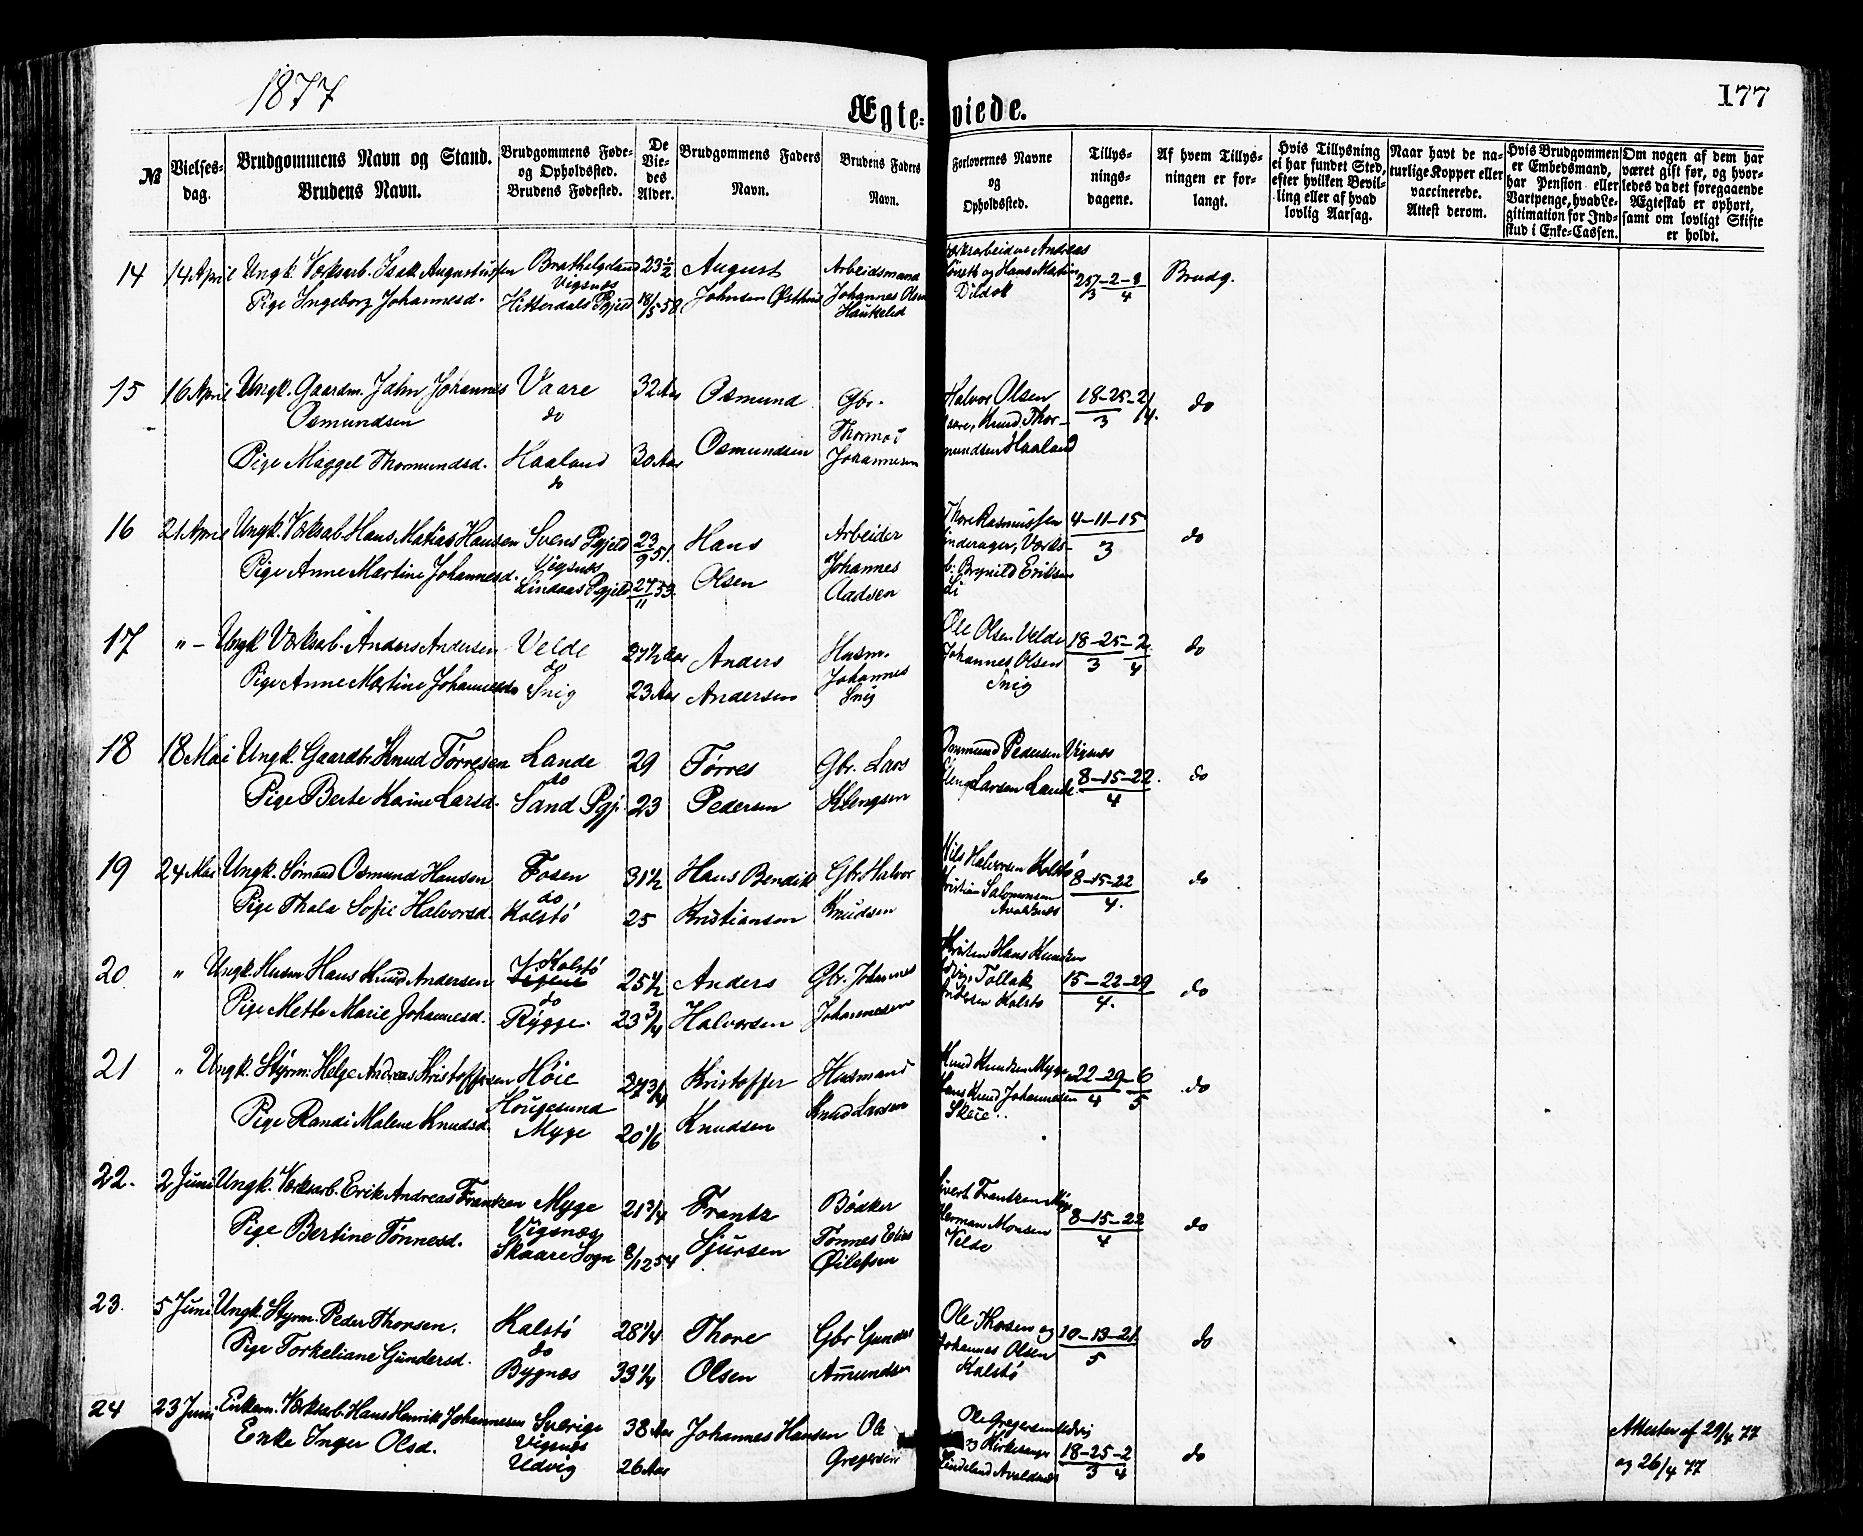 1877
177
Ægteviede.
№
Vielsesdag.
Brudgommens Navn og Stand.
Brudens Navn.
Brudgommens Føde- og Opholdssted.
Brudens Fødested.
De Viedes Alder.
Brudgommens Faders Navn.
Brudens Faders Navn.
Forlovernes Navne og Opholdssted.
Tillysningsdagene.
Af hvem Tillysningen er forlangt.
Hvis Tillysning ei har fundet Sted, efter hvilken Bevilling eller af hvad lovlig Aarsag.
Naar havt de naturlige Kopper eller vaccinerede. Attest derom.
Hvis Brudgommen er Embedsmand, har Pension eller Vartpenge, hvad Legitimation for Indskud i Enke-Cassen.
Om nogen af dem har været gift før, og hvorledes da det foregaaende Ægteskab er ophørt, samt om lovligt Skifte er holdt.
14 14 April Ungk. Værksarb. Isak Augustussen Vigsnæs 23½ August Arbeidsmand Brudg.
Pige Ingeborg Johannesd. Hitterdals Pgjeld 18/5 58 Johannes Olsen
15 16 April Ungk. Gaardm. John Johannes Vaare 32 Aar Osmund Gbr. Halvor Olsen 18-25-2/4 do
Osmundsen do Knud Thor-
Pige Maggel Thormundsd. Haaland 30 Aar Osmundsen Johannesen mundsen Haaland
do
16 21 April Ungk. Værksab. Hans Matias Hansen Svens Pgjeld 23/9 51. Hans Arbeider Thore Rasmussen 4-11-15 do
Vigsnæs Johannes Værks- 3
Pige Anne Martine Johannesd. Lindaas Pgjeld 27/11 53 Olsen Aadsen b. Brynild Eriksen
17 " - Ungk Værksab. Anders Andersen Velde 27½ Aar Anders Husm. Ole Olsen Velde 18-25-2 do
Pige Anne Martine Johannesd. Snig 23 Aar Andersen Johannes Snig Johannes Olsen Snig 3 4
18 18 Mai Ungk. Gaardbr. Knud Tørresen Lande 29 Tørres Gbr. Lars Osmund Pedersen Vigsnæs 8-15-22. do
do
Pige Berte Karine Larsd. Sand Pgj. 23 Pedersen Klengsen Kleng Larsen Lande 4
19 24 Mai Ungk. Sømand Osmund Hansen Fosen 31½ Hans Bendik Gbr. Halvor Nils Halvorsen Kolstø 8-15-22 do
do
Pige Thala Sofie Halvorsd. Kolstø 25 Kristiansen Knudsen Kristian Salomonsen Avaldsnæs 4.
20 " Ungk. Husm Hans Knud Andersen Kolstø 25½ Anders Gbr. Johannes Hans Knudsen 15-22-29 do
do
Pige Mette Marie Johannesd. Rygge. 23 3/4 Halvorsen Johannesen Tollak Andersen Kolstø 4.
21 " Ungk. Styrm. Helge Andreas Kristoffersen Høie 27 3/4 Kristoffer Husmand Knud Knudsen Myge 22-29-6 do
Hougesund
Pige Randi Malene Knudsd. Myge 20 1/6 Knudsen Knud Larsen Hans Knud Johannesen Skeie 4 5
22. 2 Juni Ungk. Værksarb. Erik Andreas Frantzen Myge 21 3/4 Frantz Bødker Sivert Frantzen Myge 8-15-22 do
Vigsnæs
Pige Bertine Tønnesd. Skaare Sogn 8/12 54 Sjursen Tønnes Elias Herman Monsen Velde 4
23. 5 Juni Ungk. Styrm. Peder Thorsen. Kalstø 28¼ Thore Gbr Gunder Ole Thorsen og 10-13-21 do
do
Pige Torkeliane Gundersd. Bygnæs 39¼ Olsen Amundsen Johannes Olsen Kalstø 5
24 23 Juni Enkem. Værksarb. Hans Henrik Johannesen Sverige 38 Aar Johannes Hansen Ole Ole Gregersen Udvig 18-25-2 do Attester af 29/4 77
Vigsnæs
Enke Inger Olsd. Udvig 26 Aar Gregersen Avaldsnæs 3 4 og 26/4 77